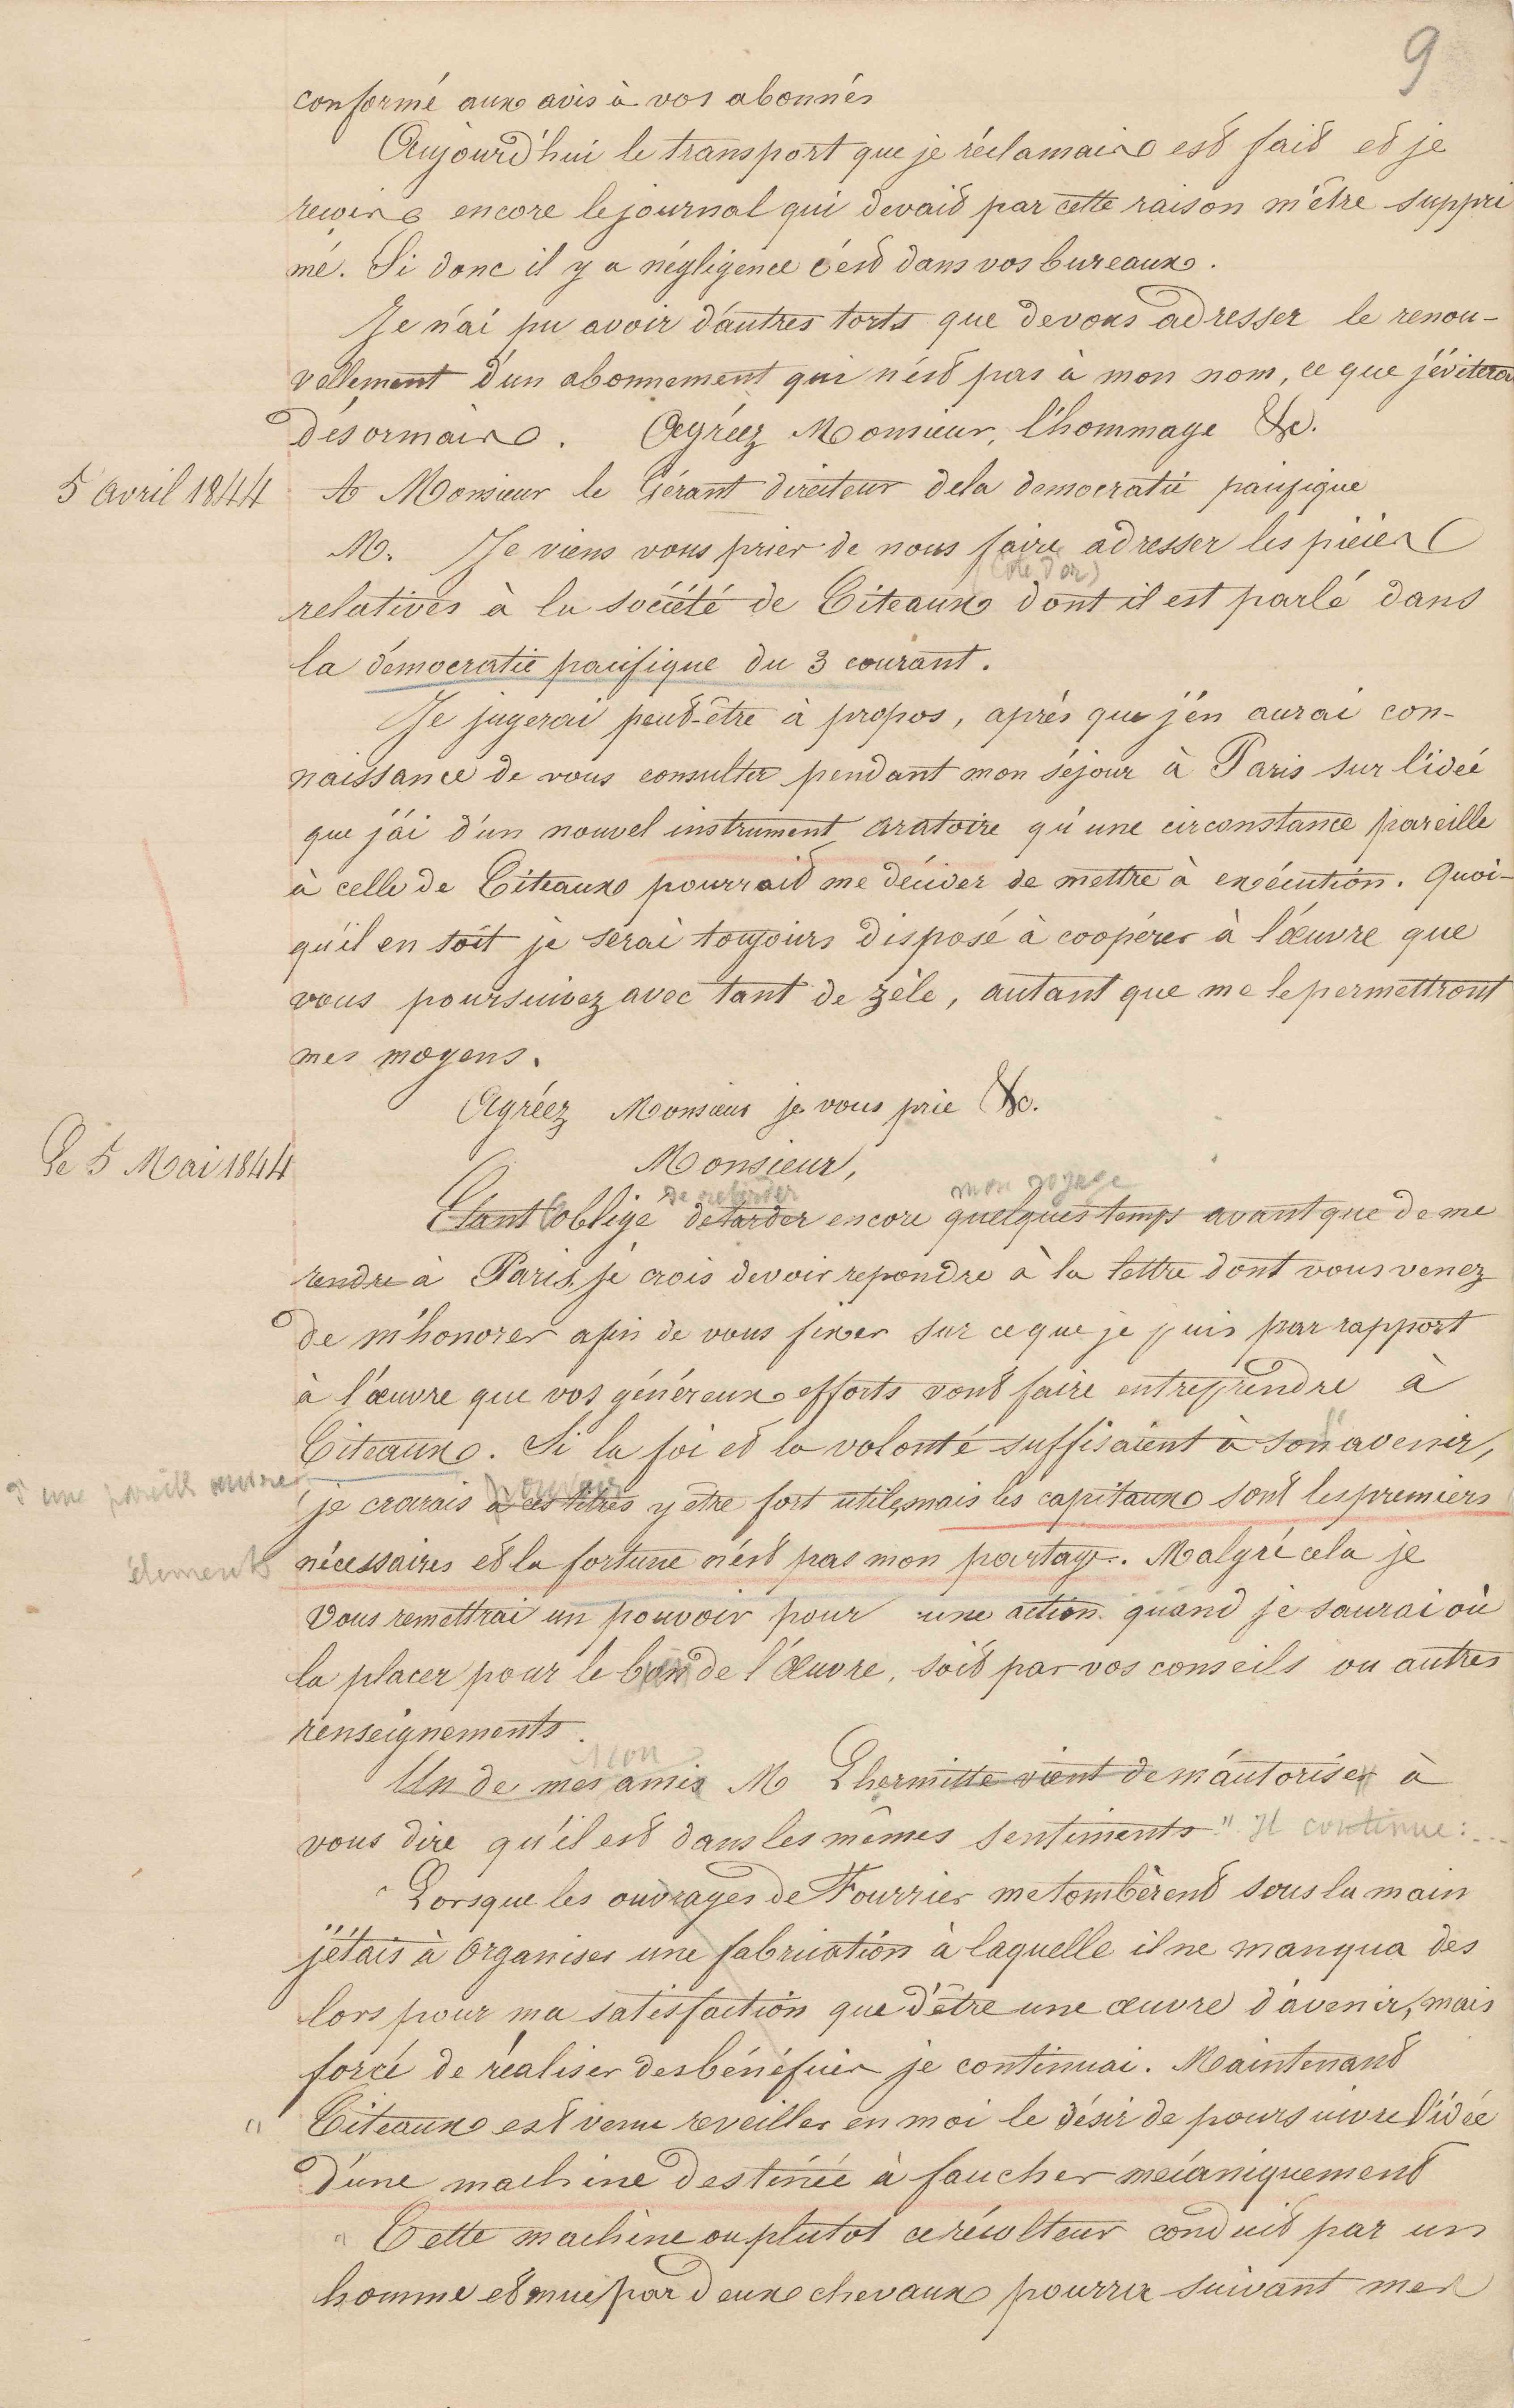 9
conformé aux avis à vos abonnés
Aujourd'hui le transport que je réclamais est fait et je
reçois encore le journal qui devait par cette raison m'être suppri
mé. Si donc il y a négligence c'est dans vos bureaux.
Je n'ai pu avoir d'autres torts que de vous adresser le renou-
vellement d'un abonnement qui n'est pas à mon nom, ce que j'éviterai
désormais. Agréez Monsieur, l'hommage &c.
5 avril 1844
A Monsieur le Gérant directeur de la democratie pacifique
M. Je viens vous prier de nous faire adresser les pièces
(Côte d'or)
relatives à la société de Citeaux dont il est parlé dans
la démocratie pacifique du 3 courant.
Je jugerai peut-être à propos, après que j'en aurai con-
naissance de vous consulter pendant mon séjour à Paris sur l'idée
que j'ai d'un nouvel instrument aratoire qu'une circonstance pareille
à celle de Citeaux pourrait me décider de mettre à exécution. Quoi-
qu'il en soit je serai toujours disposé à coopérer à l'œuvre que
vous poursuivez avec tant de zèle, autant que me le permettront
mes moyens.
Agréez Monsieur je vous prie &c.
Le 5 Mai 1844
Monsieur,
de retarder mon voyage
Etant obligé de tarder encore quelques temps avant que de me
rendre à Paris, je crois devoir repondre à la lettre dont vous venez
de m'honorer afin de vous fixer sur ce que je puis par rapport
à l'œuvre que vos généreux efforts vont faire entreprendre à
Citeaux. Si la foi et la volonté suffisaient à son avenir,
d'une pareille œuvre
pouvoir
je croirais à ces titres y etre fort utile, mais les capitaux sont les premiers
éléments
nécessaires et la fortune n'est pas mon partage. Malgré cela je
vous remettrai un pouvoir pour une action quand je saurai où
la placer pour le bien de l'Œuvre, soit par vos conseils ou autres
renseignements.
Mon
Un de mes amis M Lhermitte vient de m'autoriser à
vous dire qu'il est dans les mêmes sentiments". Il continue:...
"Lorsque les ouvrages de Fourrier me tombèrent sous la main
j'étais à organiser une fabrication à laquelle il ne manqua des
lors pour ma satisfaction que d'être une œuvre d'avenir, mais
forcé de réaliser des bénéfices je continuai. Maintenant
" Citeaux est venu reveiller en moi le désir de poursuivre l'idée
d'une machine destinée à faucher mécaniquement
" Cette machine ou plutot ce récolteur conduit par un
homme et mue par deux chevaux pourra suivant mes